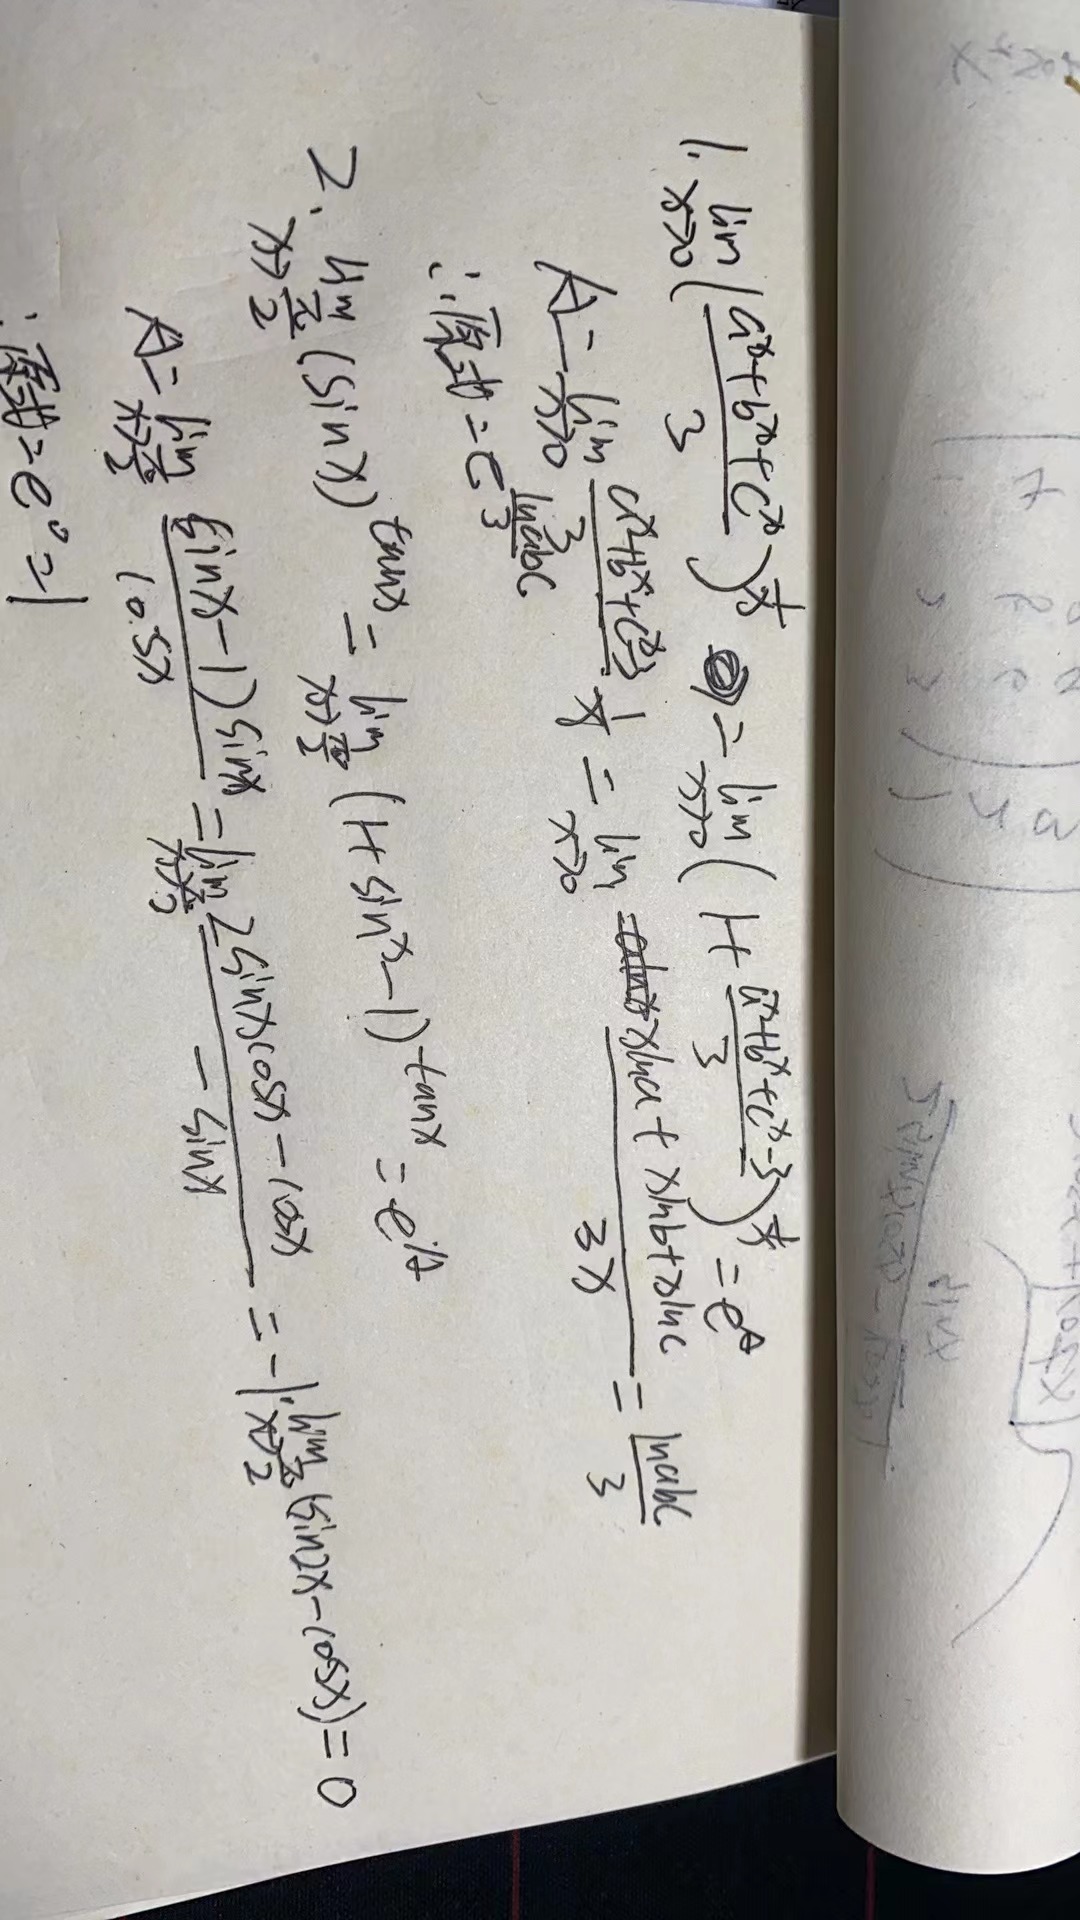 1. lim x→0 (a^x+b^x+c^x / 3)^(1/x) = lim x→0 (1+ a^x+b^x+c^x-3 / 3)^(1/x) = e^A
A = lim x→0 a^x+b^x+c^x-3 / 3 · 1/x = lim x→0 xlna + xlnb + xlnc / 3x = lnabc / 3
∴原式 = e^(lnabc / 3)
2. lim x→π/2 (sinx)^tanx = lim x→π/2 (1+sinx-1)^tanx = e^A
A = lim x→π/2 (sinx-1)sinx / cosx = lim x→π/2 2sinxcosx-cosx / -sinx = -1·lim x→π/2 (sin2x-cosx) = 0
∴原式 = e^0 = 1